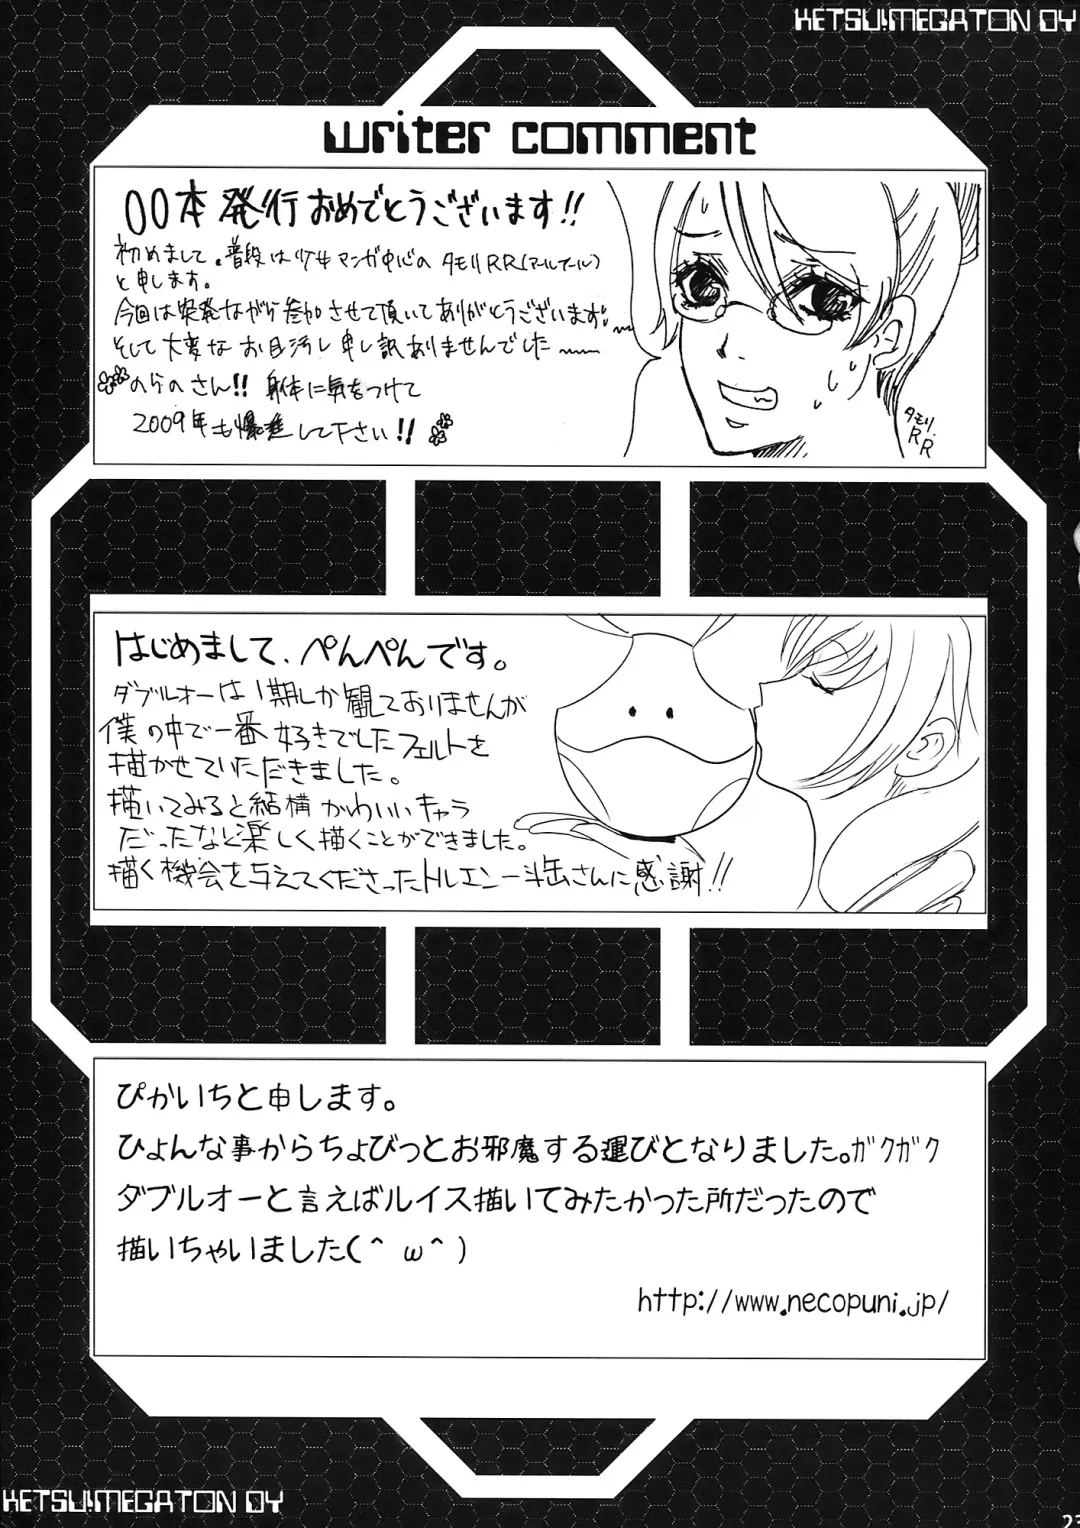 KETSU!MEGATON OY
writer comment
00本 発行おめでとうございます!!
初めまして。普段は少女マンガ中心のタモリRR(アールアール)
と申します。
今回は突発ながら参加させて頂いてありがとうございます。
そして大変なお目汚し申し訳ありませんでした
のらのさん!! 身体に気をつけて
2009年も爆進して下さい!!
タモリ.
RR
はじめまして、ぺんぺんです。
ダブルオーは1期しか観ておりませんが
僕の中で一番好きでしたフェルトを
描かせていただきました。
描いてみると結構かわいいキャラ
だったなと楽しく描くことができました。
描く機会を与えてくださったトルエン一斗缶さんに感謝!!
ぴかいちと申します。
ひょんな事からちょびっとお邪魔する運びとなりました。ガクガク
ダブルオーと言えばルイス描いてみたかった所だったので
描いちゃいました(^ω^)
http://www.necopuni.jp/
KETSU!MEGATON OY
23